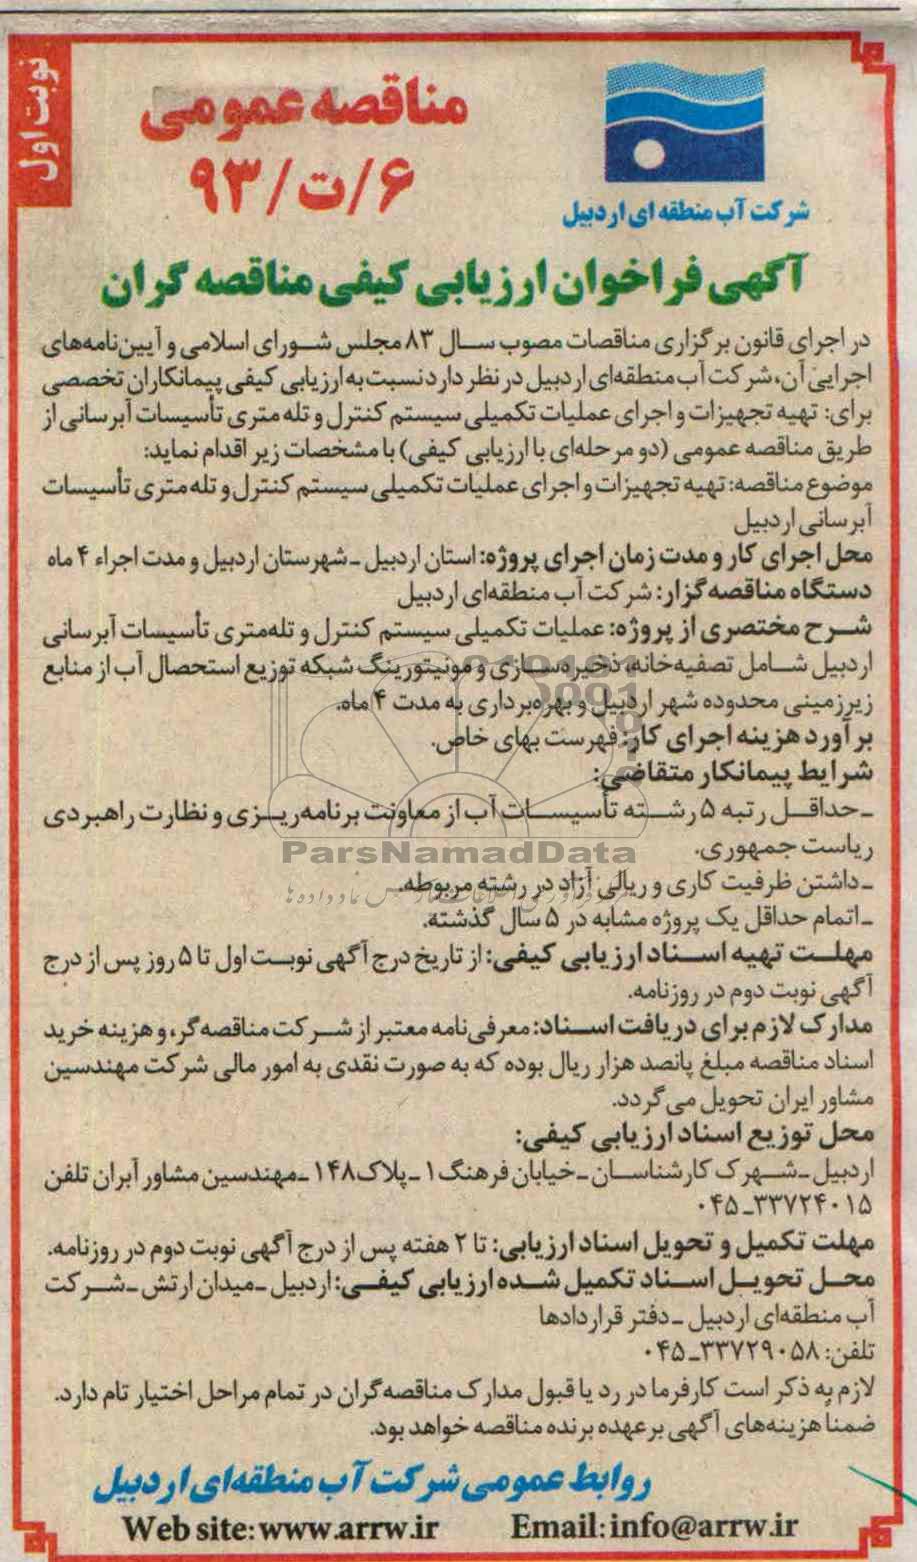 نوبت اول
مناقصه عمومی
۶/ت/۹۳
شرکت آب منطقه ای اردبیل
آگهی فراخوان ارزیابی کیفی مناقصه گران
در اجرای قانون برگزاری مناقصات مصوب سال ۸۳ مجلس شورای اسلامی و آیین‌نامه‌های
اجرایی آن، شرکت آب منطقه‌ای اردبیل در نظر دارد نسبت به ارزیابی کیفی پیمانکاران تخصصی
برای: تهیه تجهیزات و اجرای عملیات تکمیلی سیستم کنترل و تله متری تأسیسات آبرسانی از
طریق مناقصه عمومی (دو مرحله‌ای با ارزیابی کیفی) با مشخصات زیر اقدام نماید:
موضوع مناقصه: تهیه تجهیزات و اجرای عملیات تکمیلی سیستم کنترل و تله متری تأسیسات
آبرسانی اردبیل
محل اجرای کار و مدت زمان اجرای پروژه: استان اردبیل ـ شهرستان اردبیل و مدت اجراء ۴ ماه
دستگاه مناقصه‌گزار: شرکت آب منطقه‌ای اردبیل
شرح مختصری از پروژه: عملیات تکمیلی سیستم کنترل و تله‌متری تأسیسات آبرسانی
اردبیل شامل تصفیه‌خانه، ذخیره‌سازی و مونیتورینگ شبکه توزیع استحصال آب از منابع
زیرزمینی محدوده شهر اردبیل و بهره‌برداری به مدت ۴ ماه.
برآورد هزینه اجرای کار: فهرست بهای خاص.
شرایط پیمانکار متقاضی:
ـ حداقل رتبه ۵ رشته تأسیسات آب از معاونت برنامه‌ریزی و نظارت راهبردی
ریاست جمهوری.
ParsNamadData
ـ داشتن ظرفیت کاری و ریالی آزاد در رشته مربوطه.
ـ اتمام حداقل یک پروژه مشابه در ۵ سال گذشته.
مهلت تهیه اسناد ارزیابی کیفی: از تاریخ درج آگهی نوبت اول تا ۵ روز پس از درج
آگهی نوبت دوم در روزنامه.
مدارک لازم برای دریافت اسناد: معرفی‌نامه معتبر از شرکت مناقصه‌گر، و هزینه خرید
اسناد مناقصه مبلغ پانصد هزار ریال بوده که به صورت نقدی به امور مالی شرکت مهندسین
مشاور ایران تحویل می‌گردد.
محل توزیع اسناد ارزیابی کیفی:
اردبیل ـ شهرک کارشناسان ـ خیابان فرهنگ ۱ ـ پلاک ۱۴۸ ـ مهندسین مشاور آبران تلفن
۰۴۵ـ۳۳۷۲۴۰۱۵
مهلت تکمیل و تحویل اسناد ارزیابی: تا ۲ هفته پس از درج آگهی نوبت دوم در روزنامه.
محل تحویل اسناد تکمیل شده ارزیابی کیفی: اردبیل ـ میدان ارتش ـ شرکت
آب منطقه‌ای اردبیل ـ دفتر قراردادها
تلفن: ۰۴۵ـ۳۳۷۲۹۰۵۸
لازم به ذکر است کارفرما در رد یا قبول مدارک مناقصه‌گران در تمام مراحل اختیار تام دارد.
ضمناً هزینه‌های آگهی برعهده برنده مناقصه خواهد بود.
روابط عمومی شرکت آب منطقه‌ای اردبیل
Web site: www.arrw.ir Email: info@arrw.ir